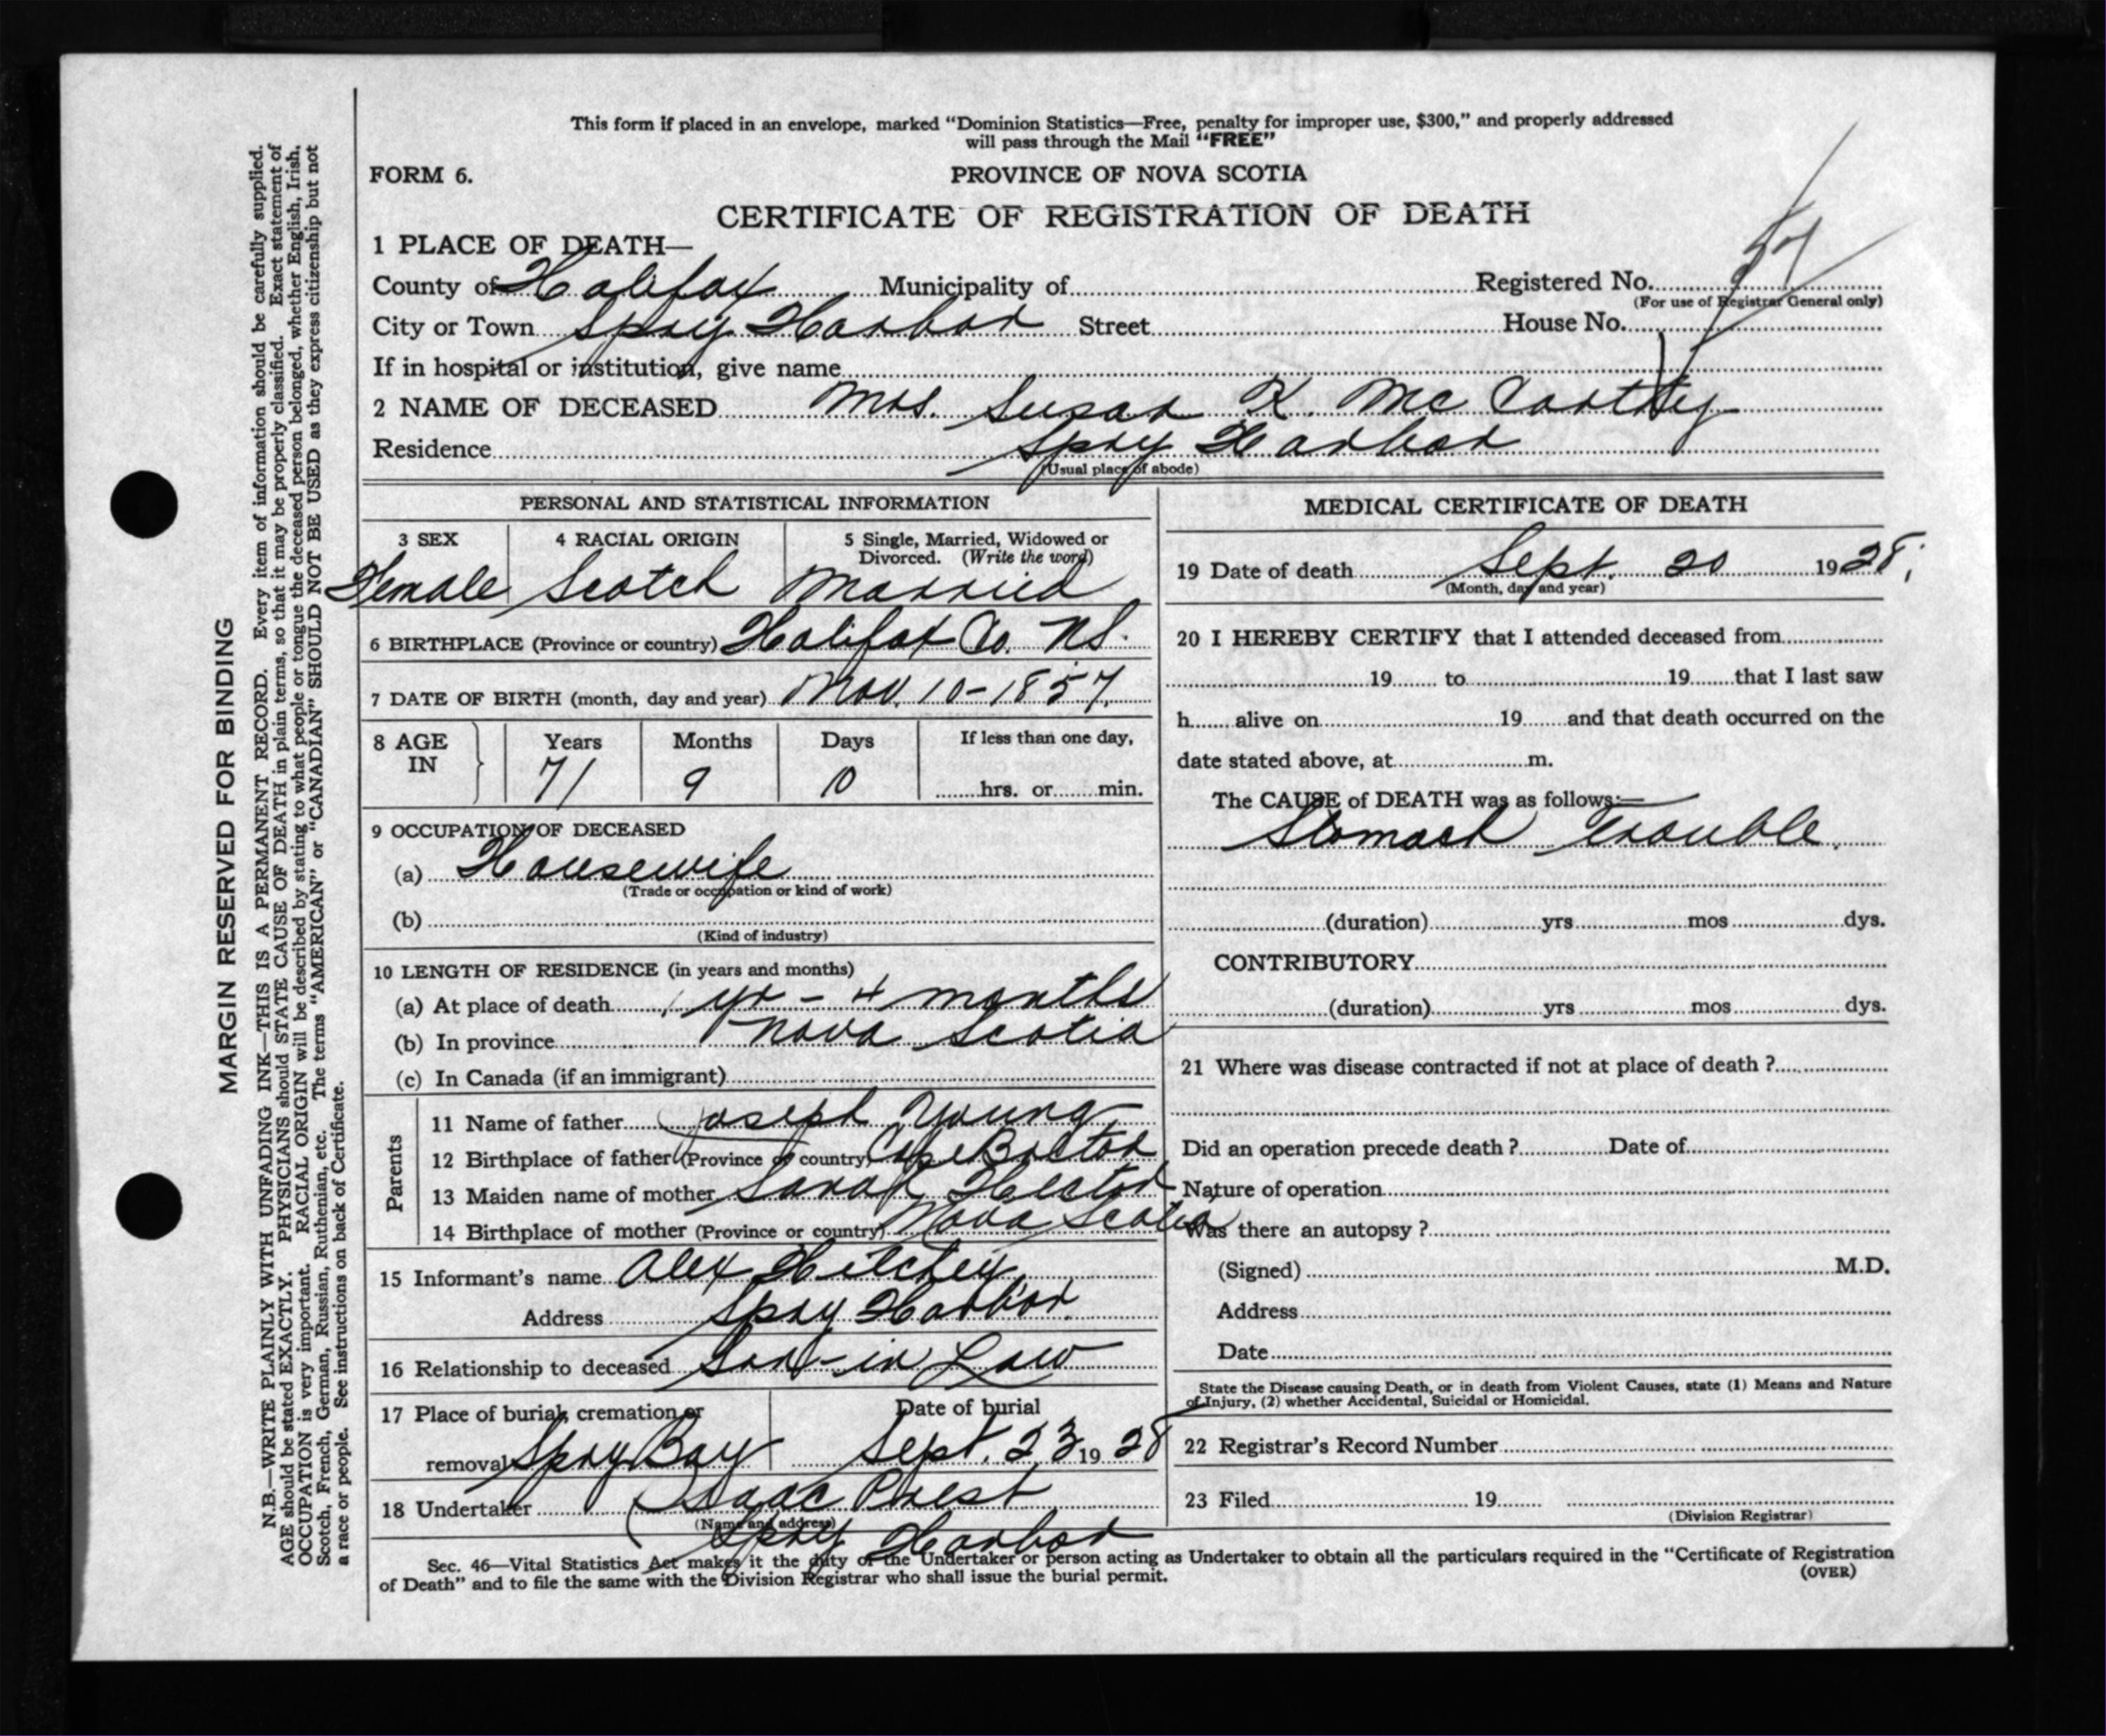 This form if placed in an envelope, marked "Dominion Statistics—Free, penalty for improper use, $300," and properly addressed
will pass through the Mail "FREE"
FORM 6.
PROVINCE OF NOVA SCOTIA
CERTIFICATE OF REGISTRATION OF DEATH
1 PLACE OF DEATH—
County of Halifax Municipality of Registered No.
(For use of Registrar General only)
City or Town Spry Harbor Street House No.
If in hospital or institution, give name
2 NAME OF DECEASED Mrs. Susan K. McCarthy
Residence Spry Harbor
(Usual place of abode)
PERSONAL AND STATISTICAL INFORMATION
3 SEX 4 RACIAL ORIGIN 5 Single, Married, Widowed or
Divorced. (Write the word)
Female Scotch Married
6 BIRTHPLACE (Province or country) Halifax Co. N.S.
7 DATE OF BIRTH (month, day and year) Nov. 10-1857
8 AGE IN Years Months Days If less than one day,
71 9 10 hrs. or min.
9 OCCUPATION OF DECEASED
(a) Housewife
(Trade or occupation or kind of work)
(b)
(Kind of industry)
10 LENGTH OF RESIDENCE (in years and months)
(a) At place of death 1 yr - 4 months
(b) In province Nova Scotia
(c) In Canada (if an immigrant)
Parents
11 Name of father Joseph Young
12 Birthplace of father (Province or country) Cape Breton
13 Maiden name of mother Sarah Hector
14 Birthplace of mother (Province or country) Nova Scotia
15 Informant's name Alex Hilchey
Address Spry Harbor.
16 Relationship to deceased Son-in Law
17 Place of burial, cremation or Date of burial
removal Spry Bay Sept. 23 1928
18 Undertaker Isaac Prest
(Name and address)
Spry Harbor
MEDICAL CERTIFICATE OF DEATH
19 Date of death Sept. 20 1928
(Month, day and year)
20 I HEREBY CERTIFY that I attended deceased from
19 to 19 that I last saw
h alive on 19 and that death occurred on the
date stated above, at m.
The CAUSE of DEATH was as follows:—
Stomach Trouble.
(duration) yrs mos dys.
CONTRIBUTORY
(duration) yrs mos dys.
21 Where was disease contracted if not at place of death ?
Did an operation precede death ? Date of
Nature of operation
Was there an autopsy ?
(Signed) M.D.
Address
Date
State the Disease causing Death, or in death from Violent Causes, state (1) Means and Nature
of Injury, (2) whether Accidental, Suicidal or Homicidal.
22 Registrar's Record Number
23 Filed 19
(Division Registrar)
Sec. 46—Vital Statistics Act makes it the duty of the Undertaker or person acting as Undertaker to obtain all the particulars required in the "Certificate of Registration
of Death" and to file the same with the Division Registrar who shall issue the burial permit.
(OVER)
MARGIN RESERVED FOR BINDING
N.B.—WRITE PLAINLY WITH UNFADING INK—THIS IS A PERMANENT RECORD. Every item of information should be carefully supplied.
AGE should be stated EXACTLY. PHYSICIANS should STATE CAUSE OF DEATH in plain terms, so that it may be properly classified. Exact statement of
OCCUPATION is very important. RACIAL ORIGIN will be described by stating to what people or tongue the deceased person belonged, whether English, Irish,
Scotch, French, German, Russian, Ruthenian, etc. The terms "AMERICAN" or "CANADIAN" SHOULD NOT BE USED as they express citizenship but not
a race or people. See instructions on back of Certificate.